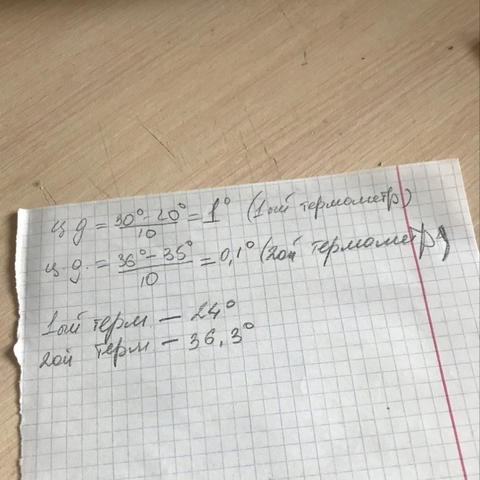 ц д = 30°-20°/10 = 1° (1ый термометр)
ц д. = 36°-35°/10 = 0,1° (2ой термометр)
1ый терм — 24°
2ой терм — 36,3°